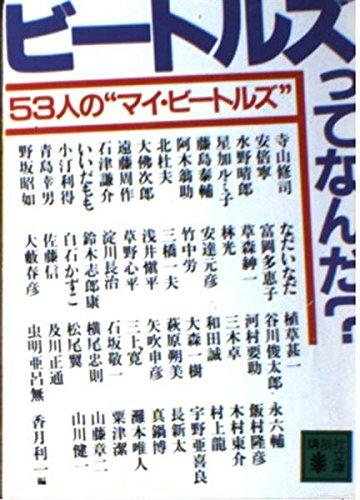 ビートルズってなんだ?
53人の“マイ・ビートルズ”
寺山修司 なだいなだ 植草甚一
安倍寧 富岡多恵子 谷川俊太郎 永六輔
水野晴郎 草森紳一 河村要助 飯村隆彦
星加ルミ子 林光 三木卓 木村東介
藤島泰輔 安達元彦 和田誠 村上龍
阿木翁助 竹中労 大森一樹 宇野亜喜良
北杜夫 三橋一夫 萩原朔美 長新太
大佛次郎 浅井愼平 矢吹申彦 真鍋博
遠藤周作 草野心平 三上寛 灘本唯人
石津謙介 淀川長治 石坂敬一 粟津潔
いいだもも 鈴木志郎康 横尾忠則 山藤章二
小汀利得 白石かずこ 松尾翼 山川健一
青島幸男 佐藤信 及川正通
野坂昭如 大藪春彦 虫明亜呂無 香月利一 編
講談社文庫